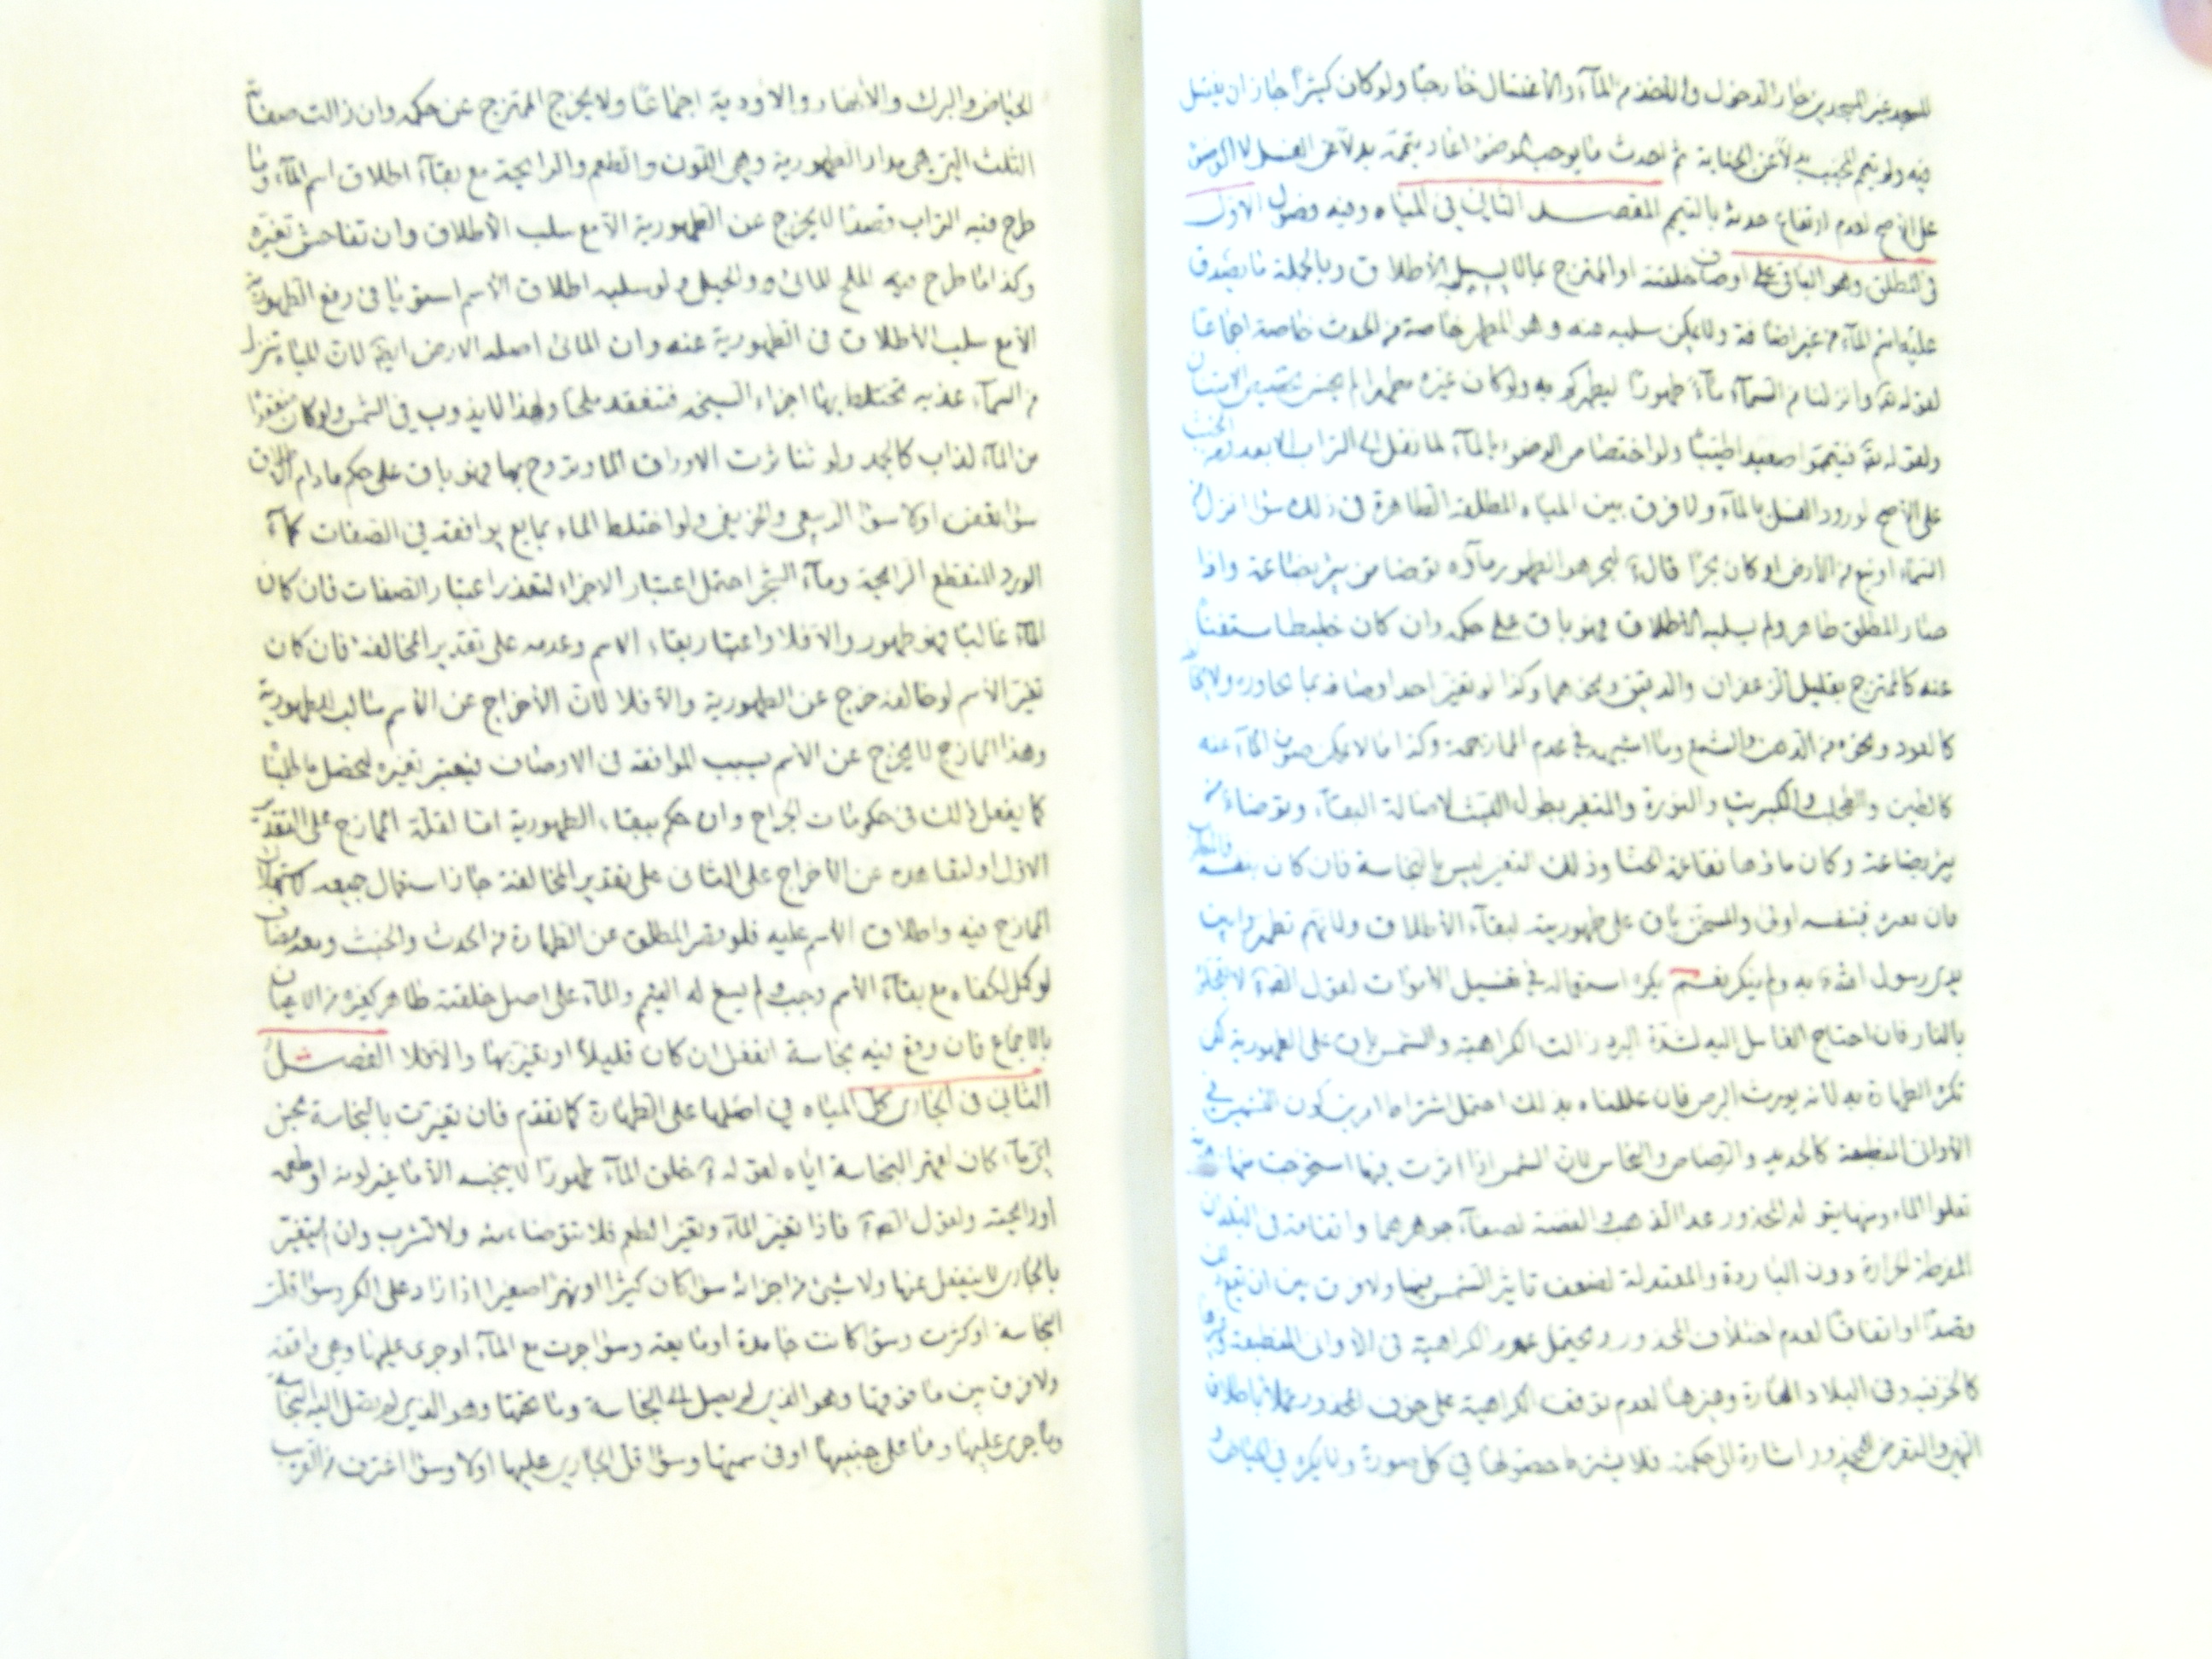 المسجد غير المسجدين جاز الدخول والاخذ من المآء والاغتسال خارجا ولو كان كثيرا جاز ان يغتسل
فيه ولو تيمم الجنب بدلا عن الجنابة ثم احدث ما يوجب الوضوء اعاد تيممه بدلا عن الغسل لا الوضوء
على الأصح لعدم ارتفاع حدثه بالتيمم المقصد الثاني في المياه وفيه فصول الاول
في المطلق وهو الباقي على اوصاف خلقته او الممتزج بما لا يسلبه الأطلاق وبالجملة ما يصدق
عليه اسم المآء من غير اضافة ولا يمكن سلبه عنه وهو المطهر خاصة من الحدث خاصة اجماعا
لقوله تع وانزلنا من السمآء مآء طهورا ليطهركم به ولو كان غيره مطهرا لم يحسن تخصيص الامتنان
ولقوله تع فتيمموا صعيدا طيبا ولو اختصاص الوضوء بالمآء لما نقل الى التراب الا بعد والخبث
على الأصح لورود الغسل بالمآء ولا فرق بين المياه المطلقة الطاهرة في ذلك سوآ نزل من
السماء او نبع من الأرض او كان بحرا قال البحر هو الطهور مآؤه توضا من بئر بضاعة واذا
مازج المطلق طاهر ولم يسلبه الأطلاق فهو باق على حكمه وان كان خليطا مستغنا
عنه كالممتزج بقليل الزعفران والدقيق ونحوهما وكذا لو تغير احد اوصافه بما جاوره ولا
كالعود ونحوه من الدهن والشمع وما اشبهه في عدم الممازجة وكذا ما لا يمكن صون المآء عنه
كالطين والطحلب والكبريت والنورة والمتغير بطول اللبث لاصالة البقآء وتوضاء من
بئر بضاعة وكان ماؤها نقاعة الحنا وذلك التغير ليس بالنجاسة فان كان بنفسه
فان تغيره فبنفسه اولى والمسخن باق على طهوريته لبقآء الأطلاق ولانهم تطهروا بين
يدي رسول الله به ولم ينكر نعم يكره استعماله في تغسيل الأموات لقول الصادق لا
بالنار فان احتاج الغاسل اليه لشدة البرد زالت الكراهية والشمس باق على الطهورية لكن
تكره الطهارة به لانه يورث البرص فان عللناه بذلك احتمل اشتراط امرين كون التشميس في
الأواني المنطبعة كالحديد والرصاص والنحاس لان الشمس اذا اثرت فيها استخرجت منها
تعلوا الماء ومنها يتولد المحذور عدا الذهب والفضة لصفآء جوهرهما واتفاقه في البلدان
المفرطة الحرارة دون الباردة والمعتدلة لضعف تاثير الشمس فيها ولا فرق بين ان يقع ذلك
قصدا او اتفاقا لعدم اختلاف المحذور ويحتمل عموم الكراهية في الأواني المنطبعة وغيرها
كالخزفية وفي البلاد الحارة وغيرها لعدم توقف الكراهية على خوف المحذور عملا باطلاق
النهي والتعرض للمحذور اشارة الى حكمته فلا يشترط حصولها في كل صورة ولا يكره في الحياض و
الحياض والبرك والأنهار والاودية اجماعا ولا يخرج الممتزج عن حكمه وان زالت صفاته
الثلث التي هي مدار الطهورية وهي اللون والطعم والرايحة مع بقآء اطلاق اسم المآء وما
طرح فيه التراب قصدا لا يخرج عن الطهورية الا مع سلب الأطلاق وان تفاحش تغيره
وكذا ما طرح فيه الملح المائي والجبلي ولو سلبه اطلاق الأسم استويا في رفع الطهورية
الا مع سلب الأطلاق في الطهورية عنه وان المائي اصله الارض ايضا لان المياه تنزل
من السمآء عذبه تختلط بها اجزاء السبخه فتنعقد ملحا ولهذا لا يذوب في الشمس ولو كان منعقدا
من المآء لذاب كالجمد ولو تناثرت الاوراق الماء وتروح بها فهو باق على حكمه ما دام الاطلاق
سوآ الربيعي والخريفي ولو اختلط الماء بمايع يوافقه في الصفات كمآء
الورد المنقطع الرايحة ومآء الشجر احتمل اعتبار الاجزاء لتعذر اعتبار الصفات فان كان
المآء غالبا فهو طهور والا فلا واعتبار بقاء الاسم وعدمه على تقدير المخالفة فان كان
تغير الأسم لو خالفه خرج عن الطهورية والا فلا لان الأخراج عن الأسم سالب الطهورية
وهذا الممازج لا يخرج عن الأسم بسبب الموافقة في الاوصاف فيعتبر بغيره
كما يفعل ذلك في حكومات الجراح وان حكم ببقاء الطهورية اما لقلة الممازج على التقدير
الاول او لتقاعده عن الأخراج على الثاني على تقدير المخالفة جاز استعمال جميعه لاستهلاك
الممازج فيه واطلاق الاسم عليه فلو قصر المطلق عن الطهارة من الحدث والخبث
لو كمل لكفاه مع بقآء الأسم وجب ولم يسغ له التيمم والمآء على اصل خلقته طاهر كغيره من الاعيان
بالاجماع فان وقع فيه نجاسة انفعل ان كان قليلا او تغير بها والا فلا الفصل
الثاني في الجاري كل المياه في اصلها على الطهارة كما تقدم فان تغيرت بالنجاسة نجس
كان لقهر النجاسة اياه لقوله خلق المآء طهورا لا ينجسه الا ما غير لونه او طعمه
او رايحته ولقول الصادق فاذا تغير المآء وتغير الطعم فلا تتوضاء منه ولا تشرب وان لم يتغير
بالجاري لا ينفعل عنها ولا شيء من اجزائه سوآ كان كثيرا او نهرا صغيرا اذا زاد على الكر وسوآ قلت
النجاسة او كثرت وسوآ كانت جامدة او مايعة وسوآ جرت مع المآء او جرى عليها وهي واقفة
ولا فرق بين ما فوقها وهو الذي لم يصل الى النجاسة وما تحتها وهو الذي لم يصل اليه النجاسة
وما جرى عليها وما على جنبيها او في سمتها وسوآ قل الجاري عليها اولا وسوآ اغترف من القرب